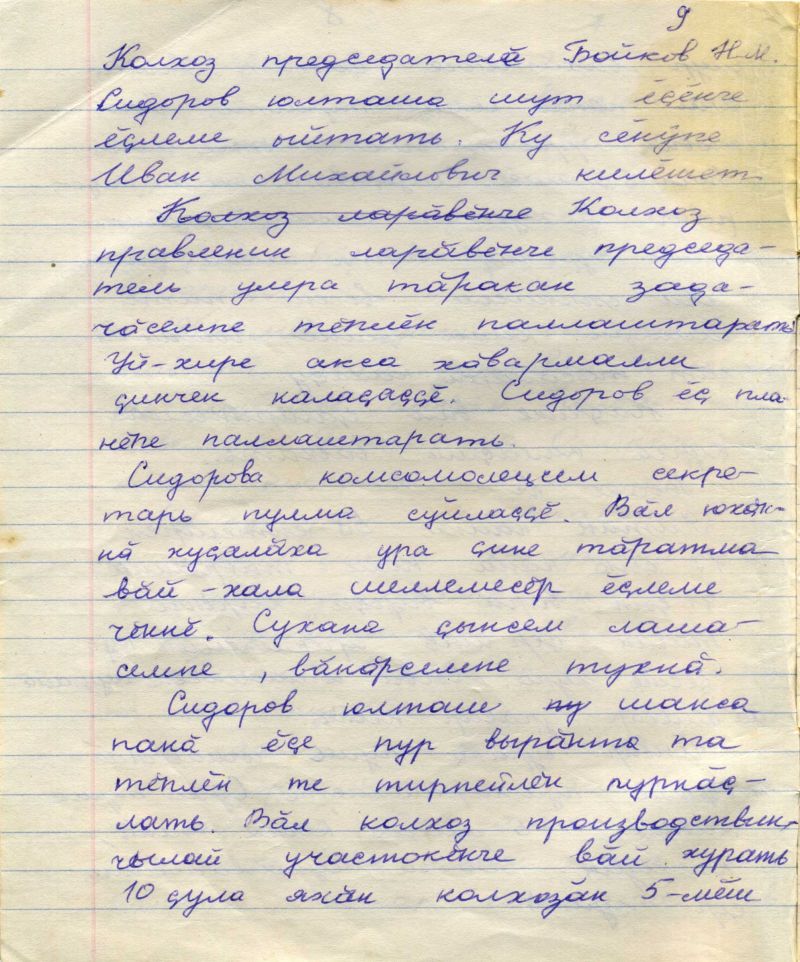 9
Колхоз председателӗ Бойков Н.М.
Сидоров юлташа шут ӗҫӗнче
ӗҫлеме ыйтать. Ку сӗнӳпе
Иван Михайлович килӗшет.
Колхоз ларӑвӗнче Колхоз
правленин ларӑвӗнче председа-
тель умра тӑракан зада-
чӑсемпе тӗплӗн паллаштарать
Уй-хире акса хӑвармалли
ҫинчен калаҫаҫҫӗ. Сидоров ӗҫ пла-
нӗпе паллаштарать.
Сидорова комсомолецсем секре-
тарь пулма суйлаҫҫӗ. Вӑл юхӑн-
нӑ хуҫалӑха ура ҫине тӑратма
вӑй-хала шеллемесӗр ӗҫлеме
чӗннӗ. Сухана ҫынсем лаша-
семпе, вӑкӑрсемпе тухнӑ.
Сидоров юлташ пу шанса
панӑ ӗҫе пур вырӑнта та
тӗплӗн те тирпейлӗн пурнӑҫ-
лать. Вӑл колхоз производствин-
чылай участокӗнче вӑй хурать
10 ҫула яхӑн колхозӑн 5-мӗш